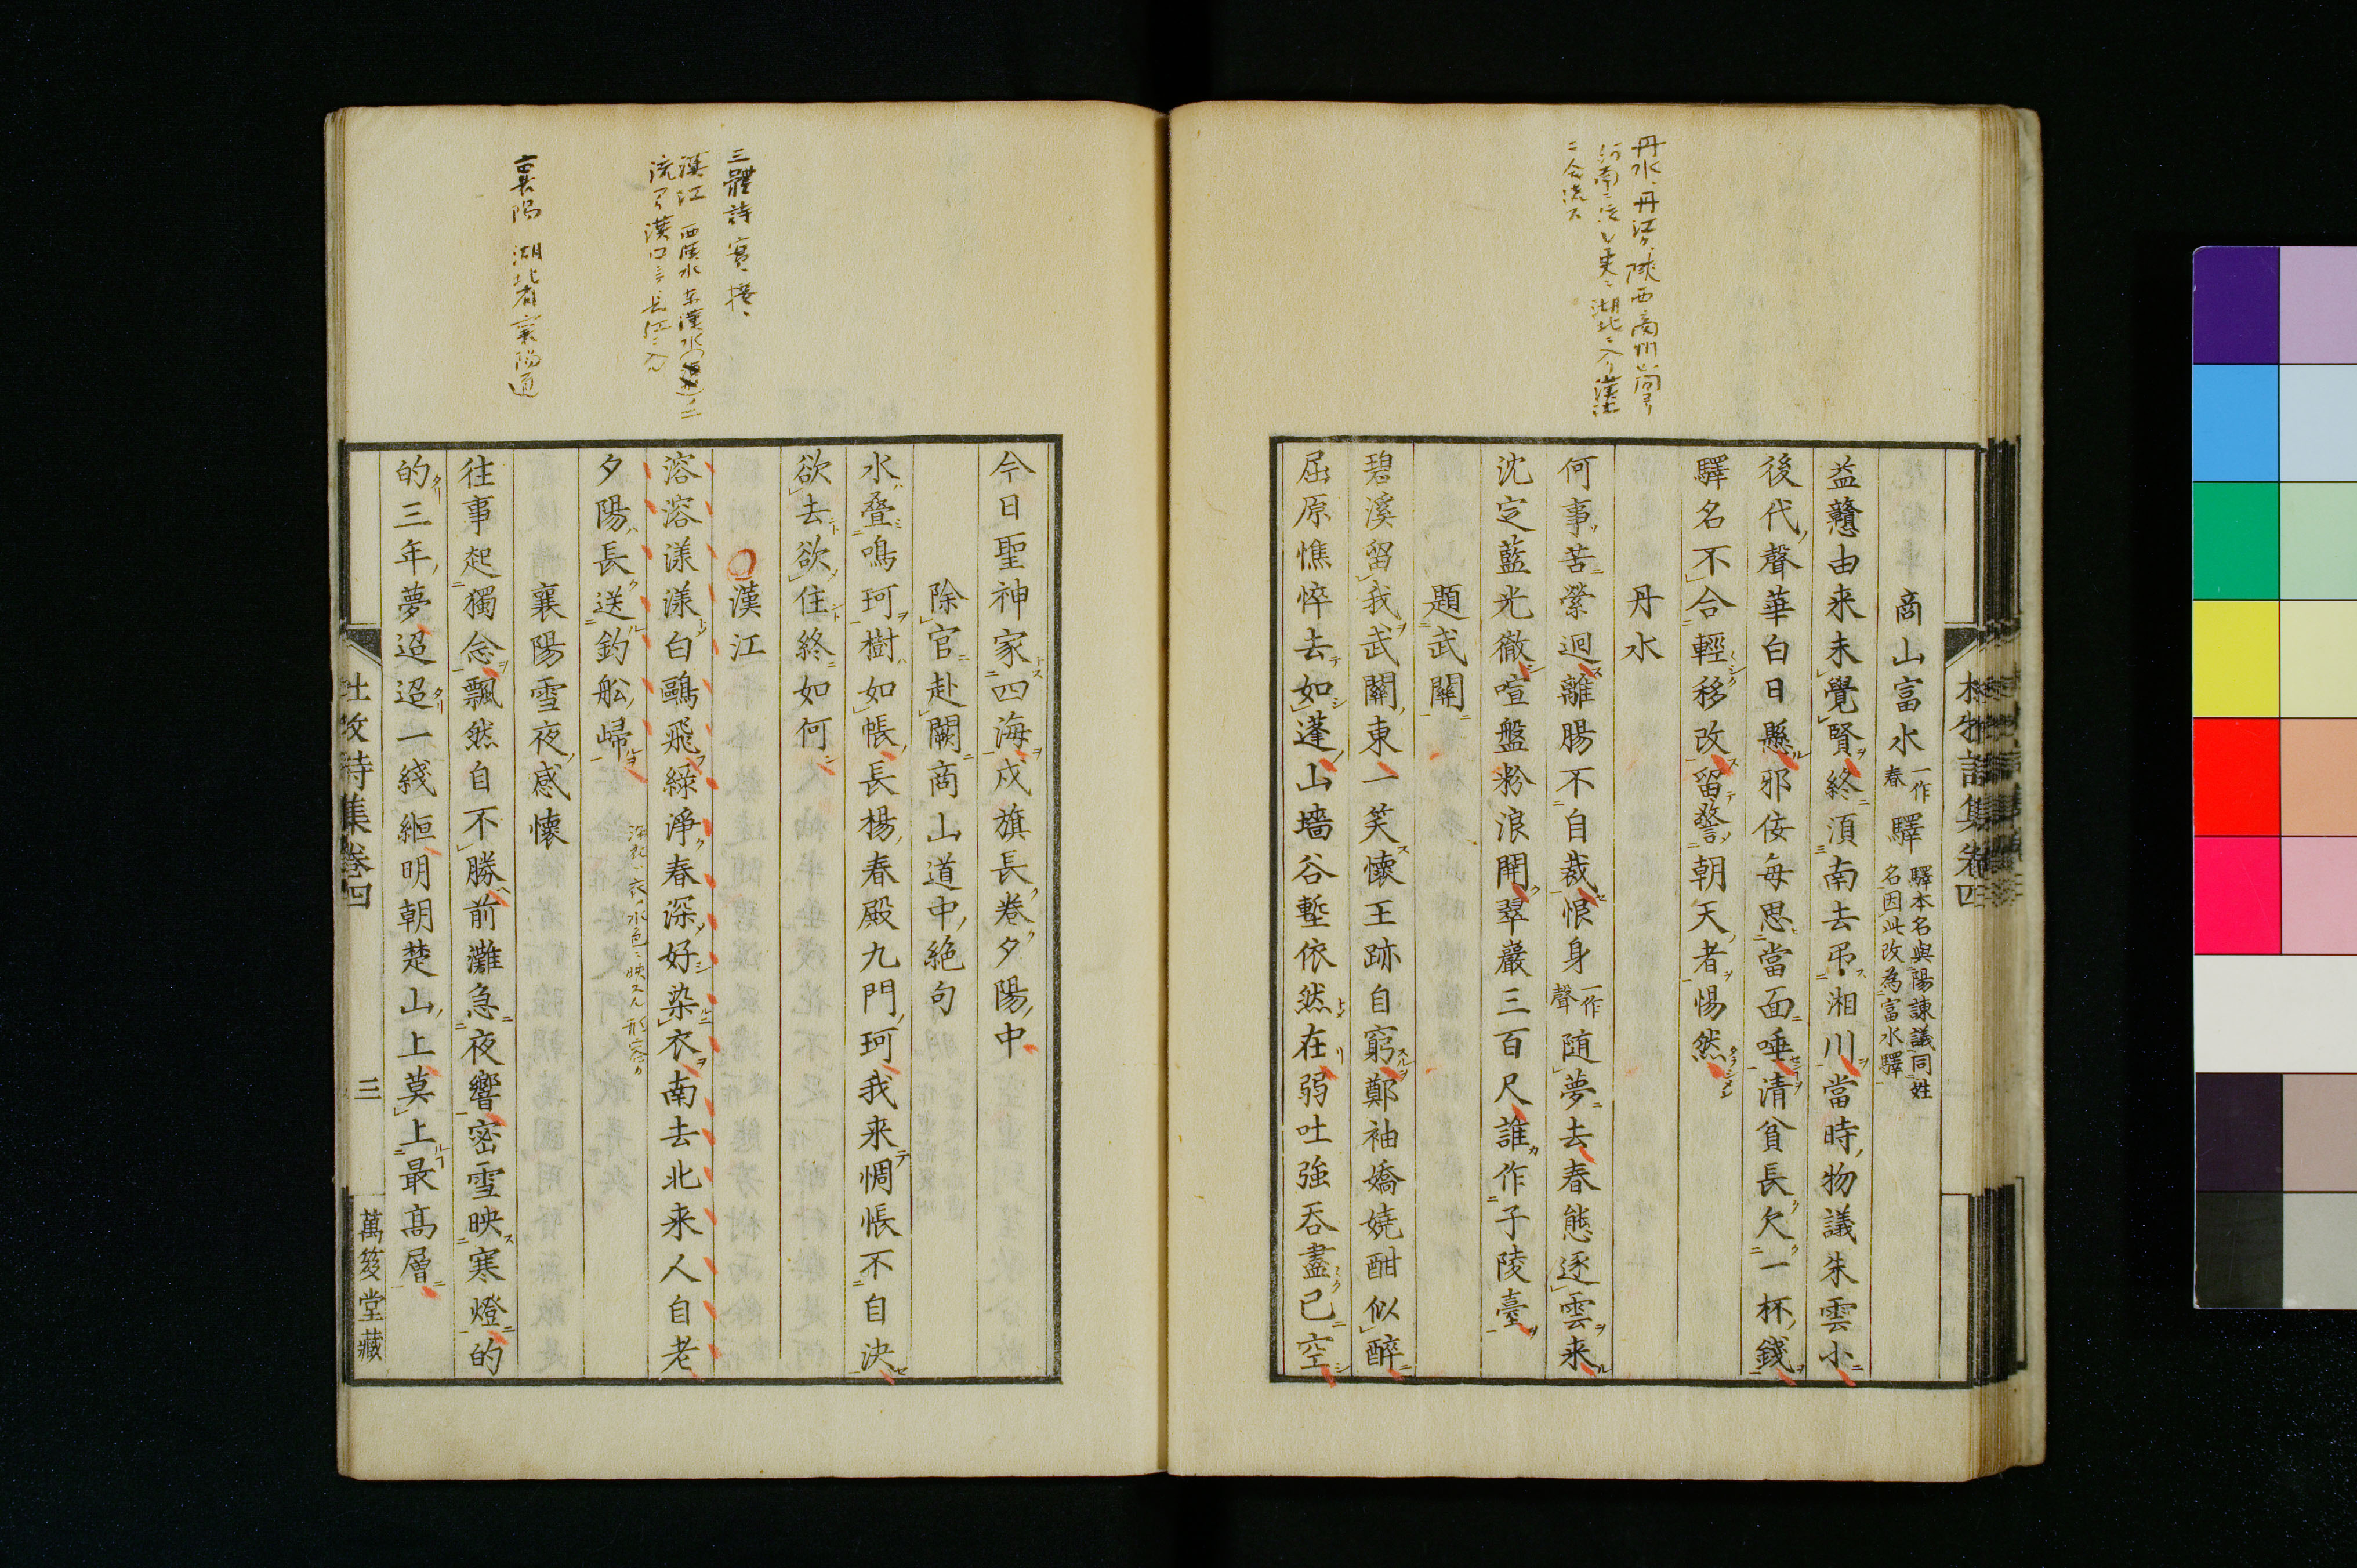 丹水、丹江
商山富水一作春驛驛本名與陽諫議同姓名因此改為富水驛
益戇由来未覺賢終須南去弔湘川當時物議朱雲小
後代聲華白日懸邪佞每思當面唾清貧長欠一杯錢
驛名不合輕移改留警朝天者惕然
丹水
何事苦縈迴離腸不自裁恨身一作聲随夢去春態逐雲来
沈定藍光徹喧盤粉浪開翠巖三百尺誰作子陵臺
題武關
碧溪留我武關東一笑懷王跡自窮鄭袖嬌嬈酣似醉
屈原憔悴去如蓬山墻谷塹依然在弱吐強吞盡已空
今日聖神家四海戍旗長卷夕陽中
除官赴闕商山道中絶句
水叠鳴珂樹如帳長楊春殿九門珂我来惆悵不自決
欲去欲住終如何
三體詩
漢江
溶溶漾漾白鷗飛緑淨春深好染衣南去北来人自老
夕陽長送釣舩歸
襄陽 湖北省襄陽道
襄陽雪夜感懷
往事起獨念飄然自不勝前灘急夜響密雪映寒燈的
的三年夢迢迢一綫縆明朝楚山上莫上最高層
杜牧詩集卷四
三
萬笈堂藏